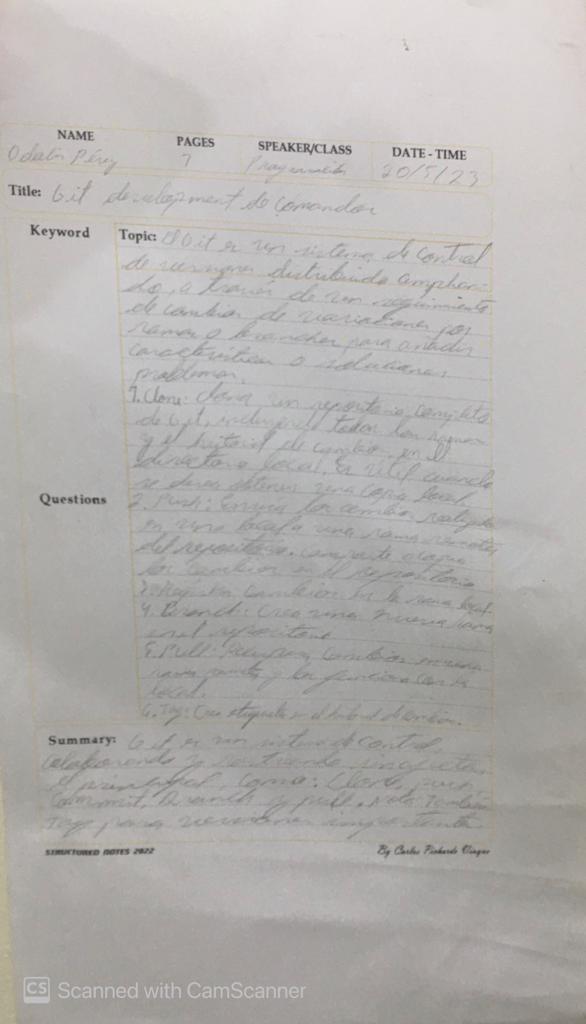 NAME PAGES SPEAKER/CLASS DATE - TIME
Pérez 7 Programación 20/5/23
Title: Git development de comandos
Keyword Topic: El Git es un sistema de control
de versiones distribuido
do, a través de un seguimiento
de cambios de variaciones por
ramas o branches para añadir
características o soluciones
problemas.
1. Clone: clona un repositorio completo
de Git, incluyendo todas las ramas
y el historial de cambios, en el
directorio local. Es útil cuando
se desea obtener una copia local.
Questions
2. Push: Envía los cambios realizados
en una local a una rama remota
del repositorio. comparte
los cambios en el repositorio
3. Registra cambios en la rama local.
4. Branch: Crea una nueva rama
en el repositorio
5. Pull: Recupera cambios en una
rama y los fusiona con la
local.
6. Tag: Crea etiquetas en el
Summary: Git es un sistema de control,
colaborando y
principal, como: Clone, push,
Commit, Branch y pull. Nota: También
Tag para versiones importantes
STRUCTURED NOTES 2022 By Carlos Pichardo Vinque
CS Scanned with CamScanner